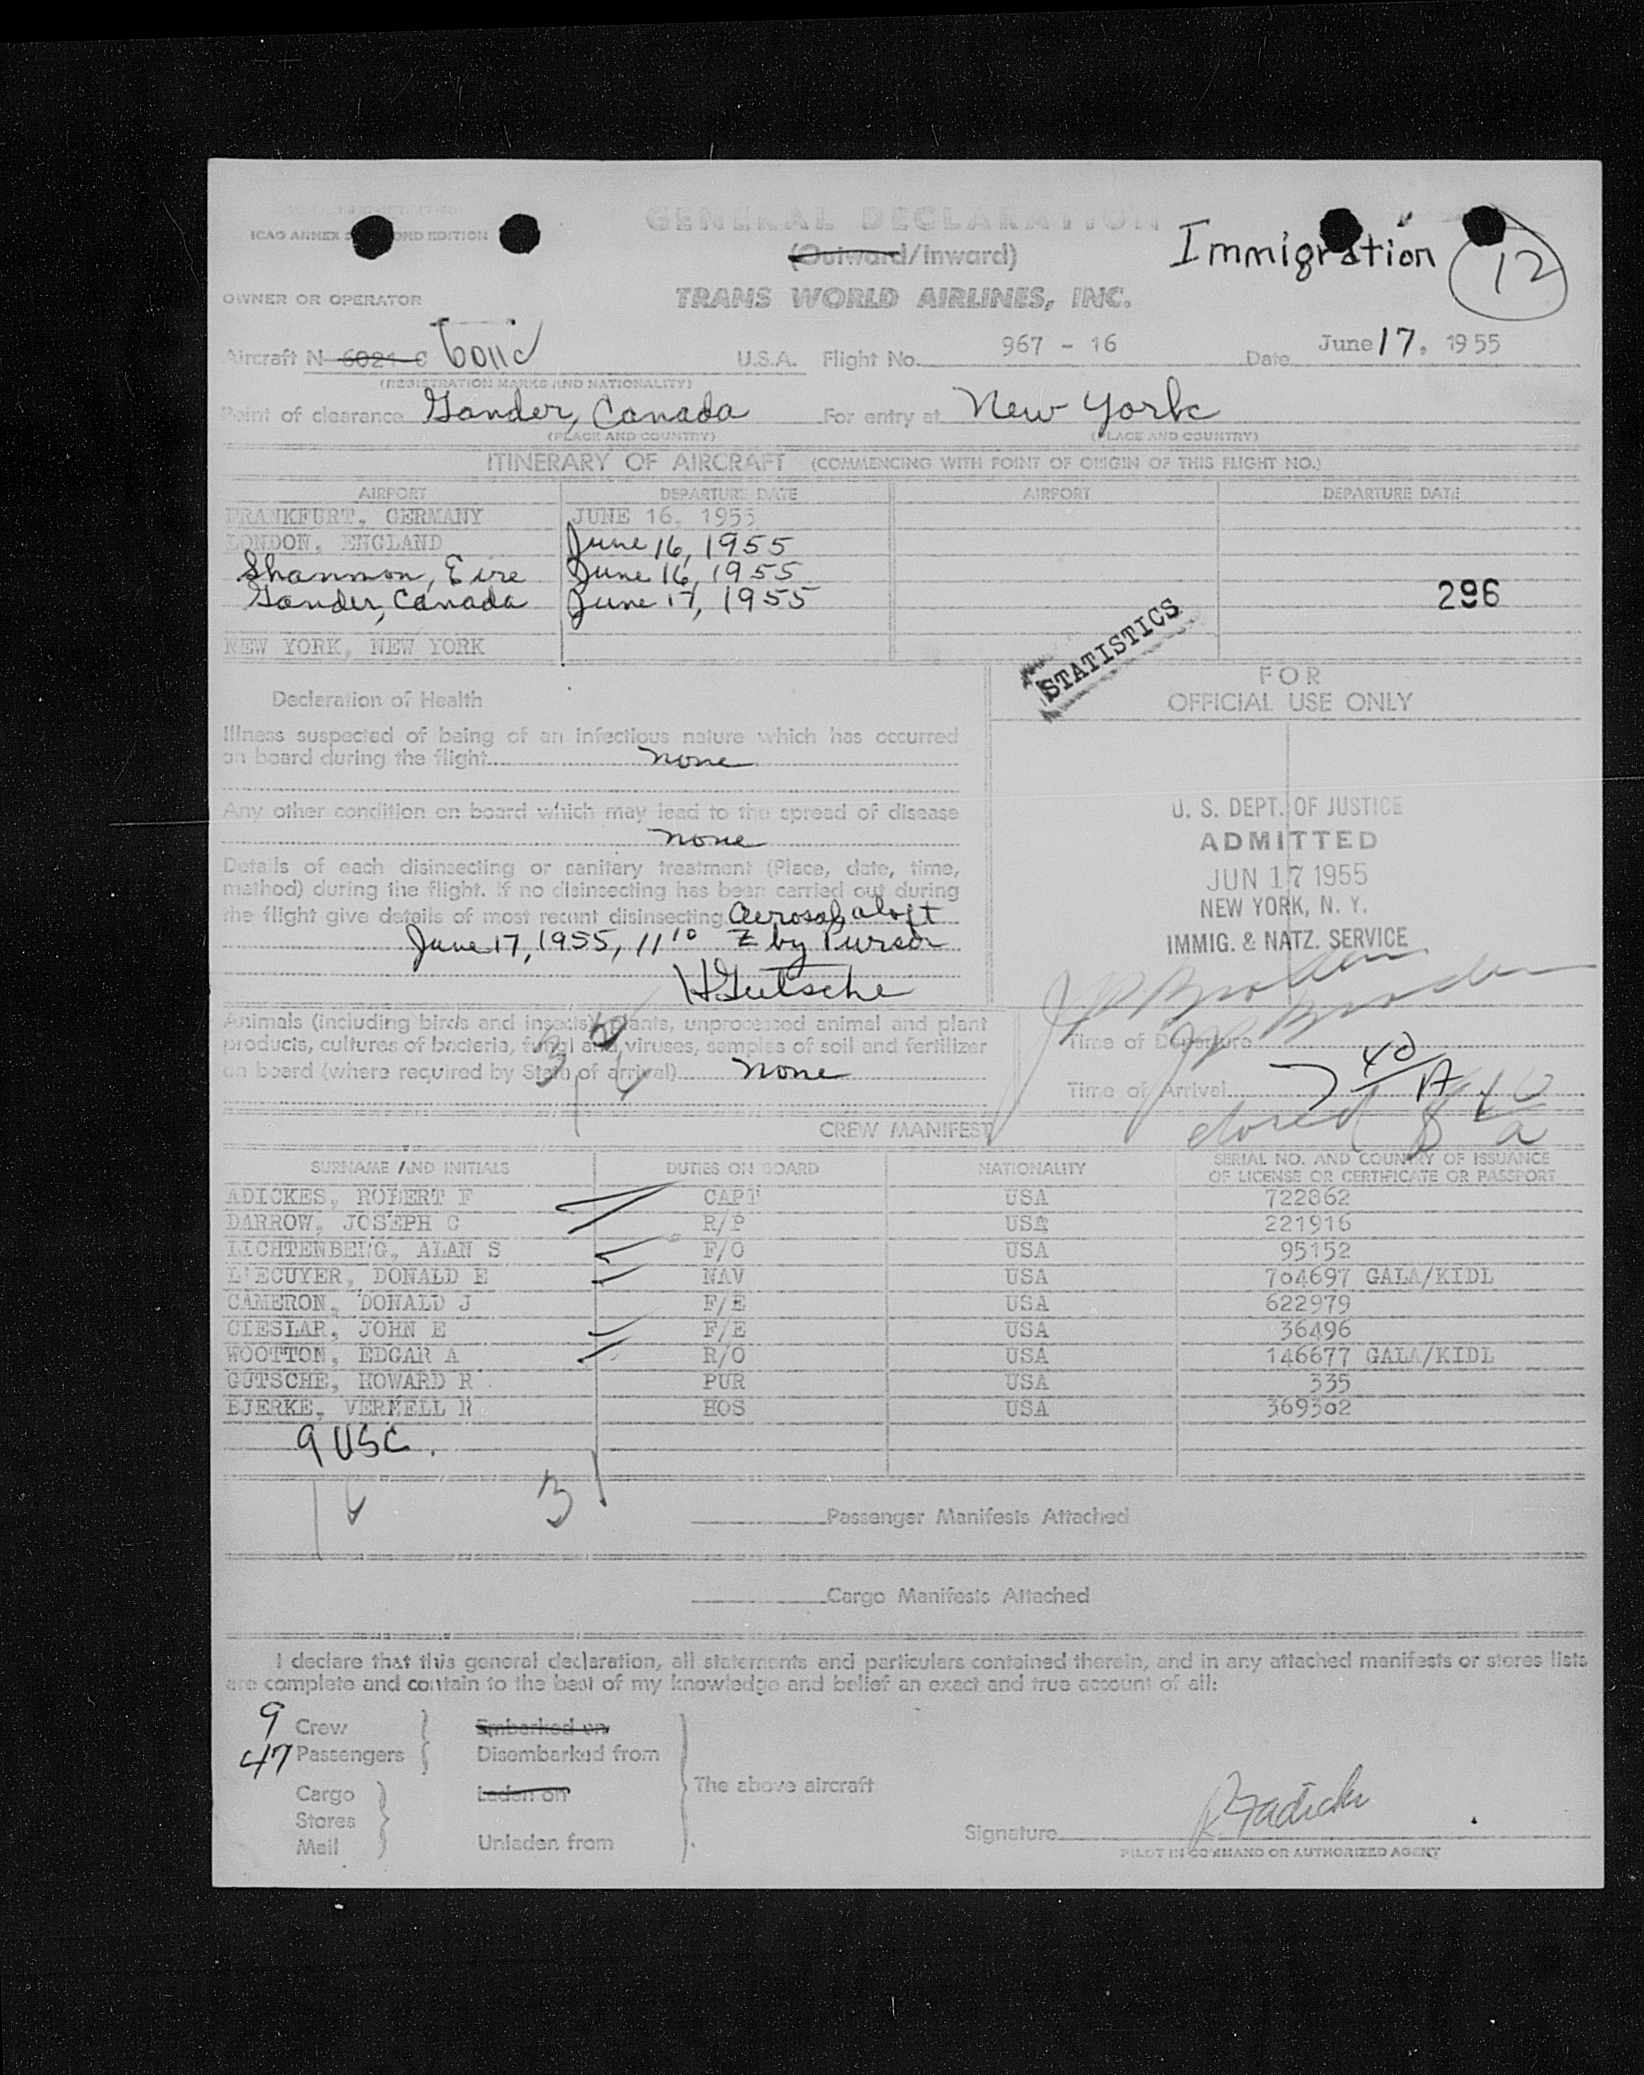 GENERAL DECLARATION
ICAO ANNEX EDITION
(Outward/Inward)
Immigration 12
OWNER OR OPERATOR TRANS WORLD AIRLINES, INC.
Aircraft N 6021 C 6011C U.S.A. Flight No. 967 - 16 Date June 17, 1955
(REGISTRATION MARKS AND NATIONALITY)
Point of clearance Gander, Canada For entry at New York
(PLACE AND COUNTRY) (PLACE AND COUNTRY)
ITINERARY OF AIRCRAFT (COMMENCING WITH POINT OF ORIGIN OF THIS FLIGHT NO.)
AIRPORT DEPARTURE DATE AIRPORT DEPARTURE DATE
FRANKFURT, GERMANY JUNE 16, 1955
LONDON, ENGLAND June 16, 1955
Shannon, Eire June 16, 1955
Gander, Canada June 17, 1955
296
NEW YORK, NEW YORK
STATISTICS
FOR
OFFICIAL USE ONLY
Declaration of Health
Illness suspected of being of an infectious nature which has occurred
on board during the flight none
Any other condition on board which may lead to the spread of disease
none
Details of each disinsecting or sanitary treatment (Place, date, time,
method) during the flight. If no disinsecting has been carried out during
the flight give details of most recent disinsecting. Aerosol aloft
June 17, 1955, 11 10 Z by Purser
H Gutsche
U. S. DEPT. OF JUSTICE
ADMITTED
JUN 17 1955
NEW YORK, N. Y.
IMMIG. & NATZ. SERVICE
Animals (including birds and insects), plants, unprocessed animal and plant
products, cultures of bacteria, fungi and viruses, samples of soil and fertilizer
on board (where required by State of arrival) none
Time of Departure
Time of Arrival 7 40 A
closed 8 10 a
CREW MANIFEST
SURNAME AND INITIALS DUTIES ON BOARD NATIONALITY SERIAL NO. AND COUNTRY OF ISSUANCE
OF LICENSE OR CERTIFICATE OR PASSPORT
ADICKES, ROBERT F CAPT USA 722862
DARROW, JOSEPH C R/P USA 221916
LICHTENBERG, ALAN S F/O USA 95152
L'ECUYER, DONALD E NAV USA 704697 GALA/KIDL
CAMERON, DONALD J F/E USA 622979
CIESLAR, JOHN E F/E USA 36496
WOOTTON, EDGAR A R/O USA 146677 GALA/KIDL
GUTSCHE, HOWARD R PUR USA 335
BJERKE, VERNELL R HOS USA 369302
9 USC.
3
Passenger Manifests Attached
Cargo Manifests Attached
I declare that this general declaration, all statements and particulars contained therein, and in any attached manifests or stores lists
are complete and contain to the best of my knowledge and belief an exact and true account of all:
9 Crew Embarked on
47 Passengers Disembarked from
The above aircraft
Cargo Laden on
Stores
Mail Unladen from
Signature R F Adickes
PILOT IN COMMAND OR AUTHORIZED AGENT